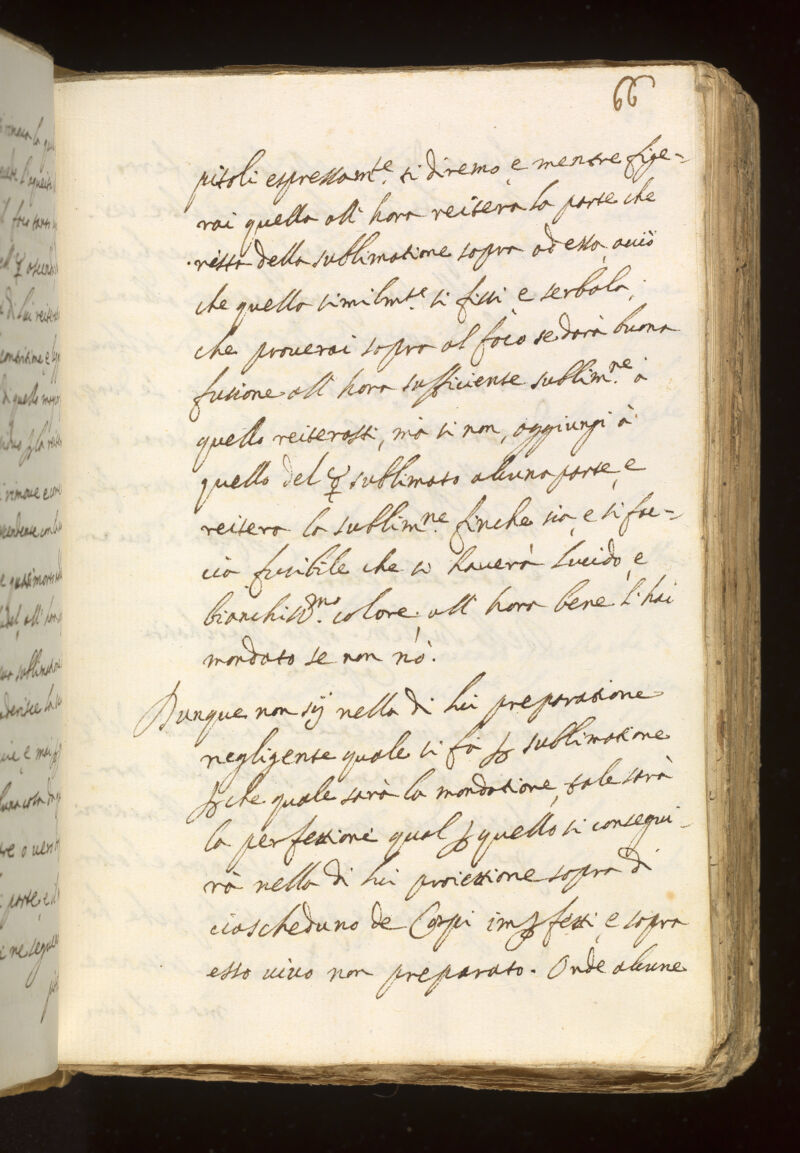 66
pitoli espressam.te ti diremo, e mentre fige=
rai quella all' hora reitera la parte che
resta della sublimatione sopra ad essa, acciò
che quella similm.te si fissi e serbala,
che proverai sopra al foco se darà buona
fusione all' hora sufficiente sublim.ne à
quello reiterasti, mà si non, aggiungi à
quello del ☿ sublimato alcuna parte, e
reitera la sublim.ne finche sia, e si fac=
cia fusibile che se haverà lucido, e
bianchiss.mo colore, all' hora bene l' hai
mondato se non nò.
Dunque non sij nella di lui preparatione
negligente quale si fà ꝑ sublimatione
ꝑche quale sarà la mondatione, tale sarà
la perfettione qual ꝑ quello si consegui=
rà nella di lui proiettione sopra di
ciascheduno de Corpi imꝑfetti, e sopra
esso vivo non preparato. Onde alcune